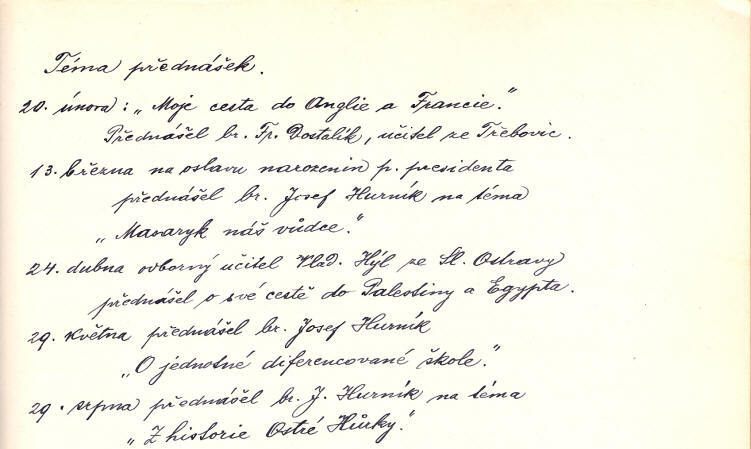 Téma přednášek.
20. února: „Moje cesta do Anglie a Francie."
Přednášel br. Fr. Dostalík, učitel ze Třebovic.
13. března na oslavu narozenin p. presidenta
přednášel br. Josef Hurník na téma
„Masaryk náš vůdce."
24. dubna odborný učitel Vlad. Hýl ze Sl. Ostravy
přednášel o své cestě do Palestiny a Egypta.
29. května přednášel br. Josef Hurník
„O jednotné diferencované škole."
29. srpna přednášel br. J. Hurník na téma
„Z historie Ostré Hůrky."